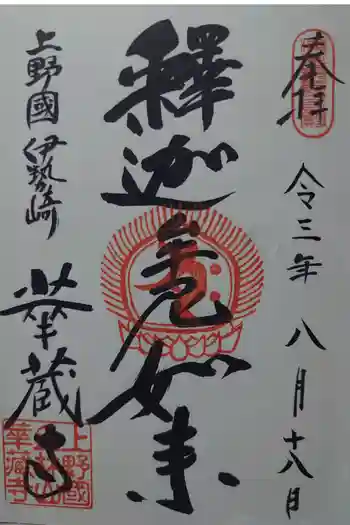 奉拝
令三年 八月十八日
釋迦尊如来
上野國 伊勢崎
華蔵寺
上野國
華蔵寺